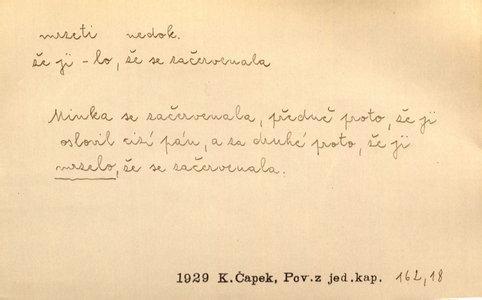 mrzeti nedok.
že ji -lo, že se začervenala
Minka se začervenala, předně proto, že ji
oslovil cizí pán, a za druhé proto, že ji
mrzelo, že se začervenala.
1929 K.Čapek, Pov.z jed.kap. 162,18